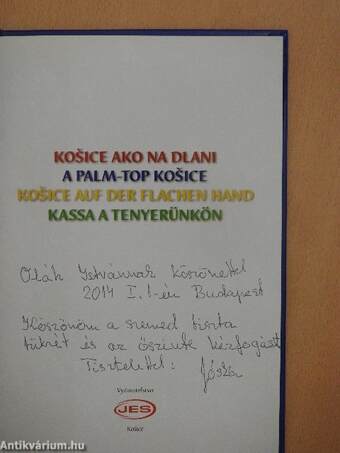 KOŠICE AKO NA DLANI
A PALM-TOP KOŠICE
KOŠICE AUF DER FLACHEN HAND
KASSA A TENYERÜNKÖN
Oláh Istvánnak köszönettel
2014 I. 1-én Budapest
Köszönöm a szemed tiszta
tükrét és az őszinte kézfogást
Tisztelettel: Jóska
Vydavateľstvo
JES
Košice
Antikvárium.hu